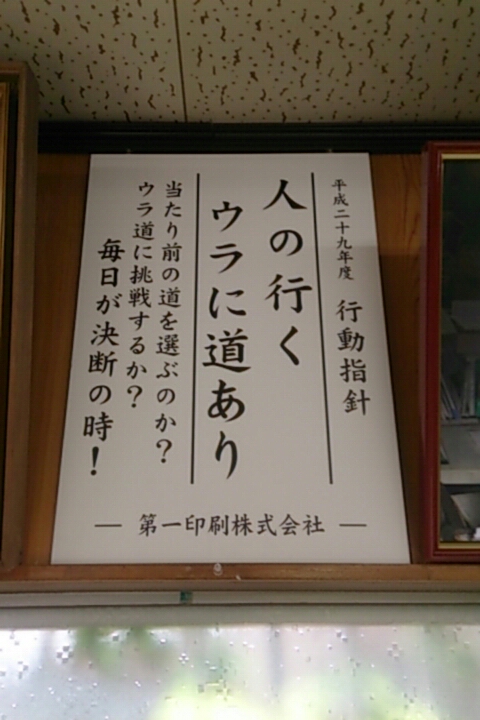 平成二十九年度 行動指針
人の行く
ウラに道あり
当たり前の道を選ぶのか？
ウラ道に挑戦するか？
毎日が決断の時！
― 第一印刷株式会社 ―